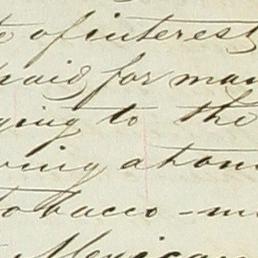 of interest
paid for man
ying to the
ving a hom
Tobacco - m
Mexican